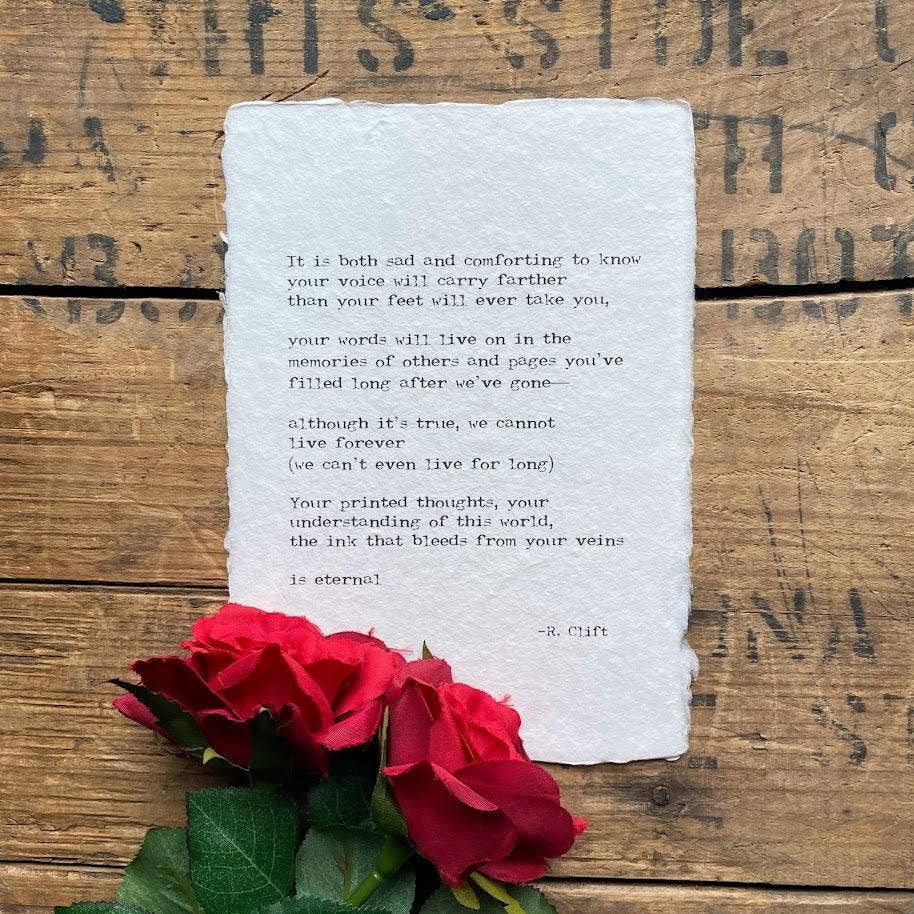 THIS SIDE
It is both sad and comforting to know
your voice will carry farther
than your feet will ever take you,
your words will live on in the
memories of others and pages you've
filled long after we've gone—
although it's true, we cannot
live forever
(we can't even live for long)
Your printed thoughts, your
understanding of this world,
the ink that bleeds from your veins
is eternal
-R. Clift